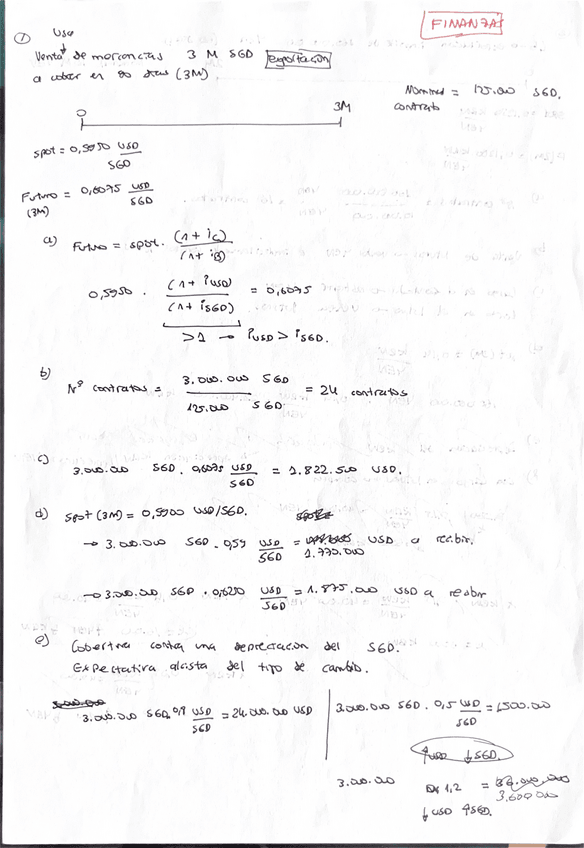 FINANZAS
① USA
Venta de mercancías 3 M SGD exportación
a cobrar en 90 días (3M)
Nominal = 125.000 SGD.
contrato
0 3M
spot = 0,5950 USD/SGD
Futuro = 0,6075 USD/SGD
(3M)
a) Futuro = spot · (1 + iC)/(1 + iB)
0,5950 · (1 + iUSD)/(1 + iSGD) = 0,6075
>1 → iUSD > iSGD.
b) Nº contratos = 3.000.000 SGD/125.000 SGD = 24 contratos
c) 3.000.000 SGD · 0,6075 USD/SGD = 1.822.500 USD.
d) spot (3M) = 0,5900 USD/SGD.
→ 3.000.000 SGD · 0,59 USD/SGD = 1.770.000 USD a recibir.
→ 3.000.000 SGD · 0,6250 USD/SGD = 1.875.000 USD a recibir
e) Cobertura contra una depreciación del SGD.
Expectativa alcista del tipo de cambio.
3.000.000 SGD · 0,8 USD/SGD = 24.000.000 USD
3.000.000 SGD · 0,5 USD/SGD = 1.500.000
↑USD ↓SGD.
3.000.000 1,2 = 3.600.000
↓ USD ↑SGD.